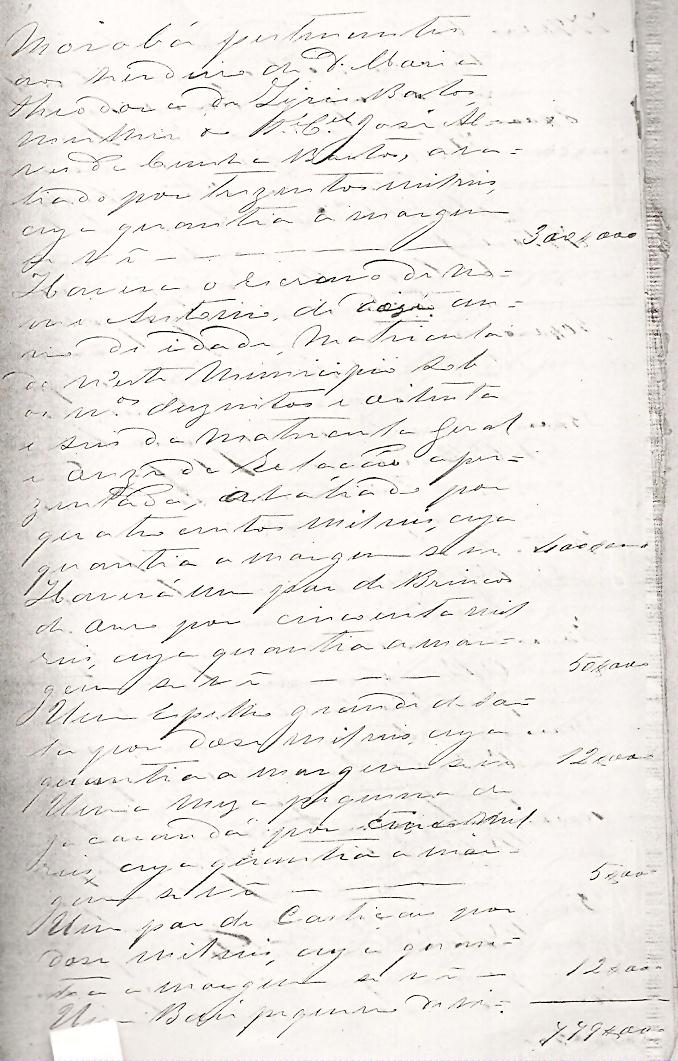 Morabá pertencentes
aos herdeiros de D. Maria
Theodora da Bastos,
mulher do José
da Cunha Bastos, ava-
liado por trezentos mil reis,
cuja quantia a margem
se vê — 300$000
Haverá o Escravo de no-
me Antonio, de an-
nos de idade, Matricula-
do n'este Municipio sob
os nos. duzentos e oitenta
e seis da Matricula Geral
e onze da Relação apre-
zentada, avaliado por
quatrocentos mil reis, cuja
quantia a margem se vê 400$000
Haverá um par de Brincos
de ouro por cincoenta mil
reis, cuja quantia a mar-
gem se vê — 50$000
Um Espelho grande de sa-
la por dose mil reis, cuja
quantia a margem se vê 12$000
Uma Meza pequena de
jacarandá por cinco mil
reis, cuja quantia a mar-
gem se vê — 5$000
Um par de Castiçaes por
dose mil reis, cuja quan-
tia a margem se vê — 12$000
Um Bahú pequeno de
779$000